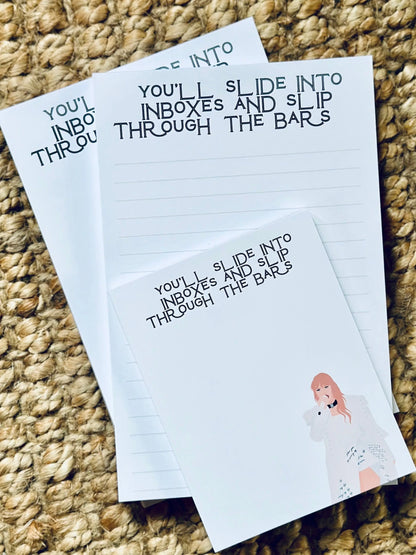 YOU'LL SLIDE INTO
INBOX
THROUGH
YOU'LL SLIDE INTO
INBOXES AND SLIP
THROUGH THE BARS
YOU'LL SLIDE INTO
INBOXES AND SLIP
THROUGH THE BARS